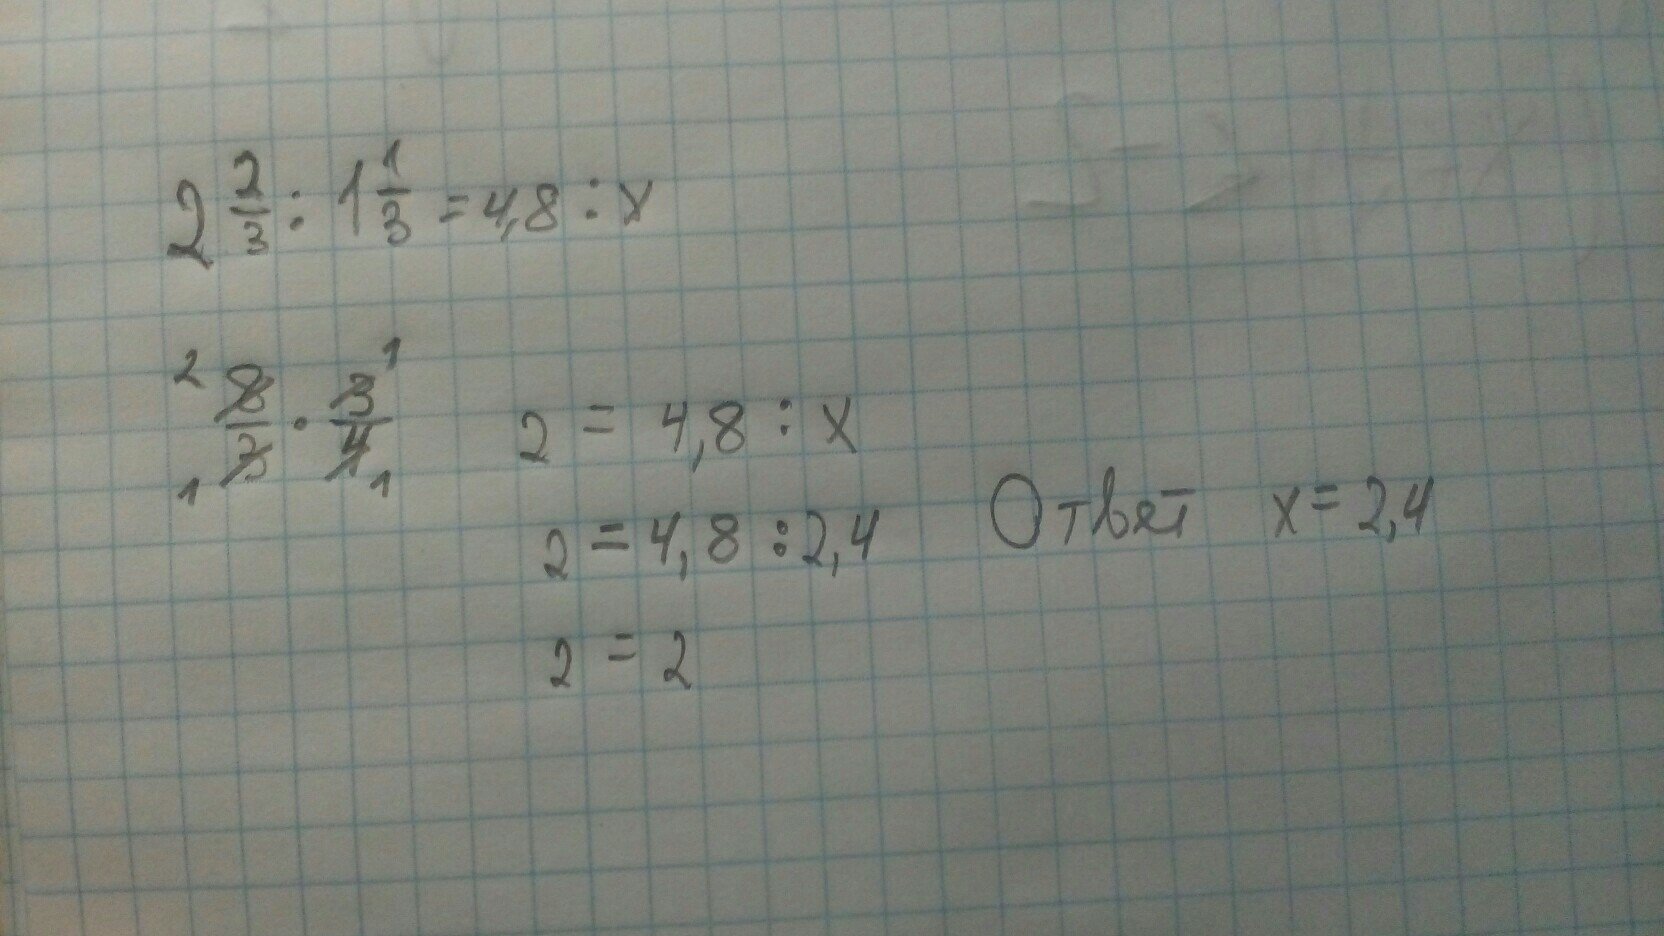 2 2/3 : 1 1/3 = 4,8 : x
2 8/3 1 · 3/4 1 1
2 = 4,8 : x
2 = 4,8 : 2,4
2 = 2
Ответ x = 2,4